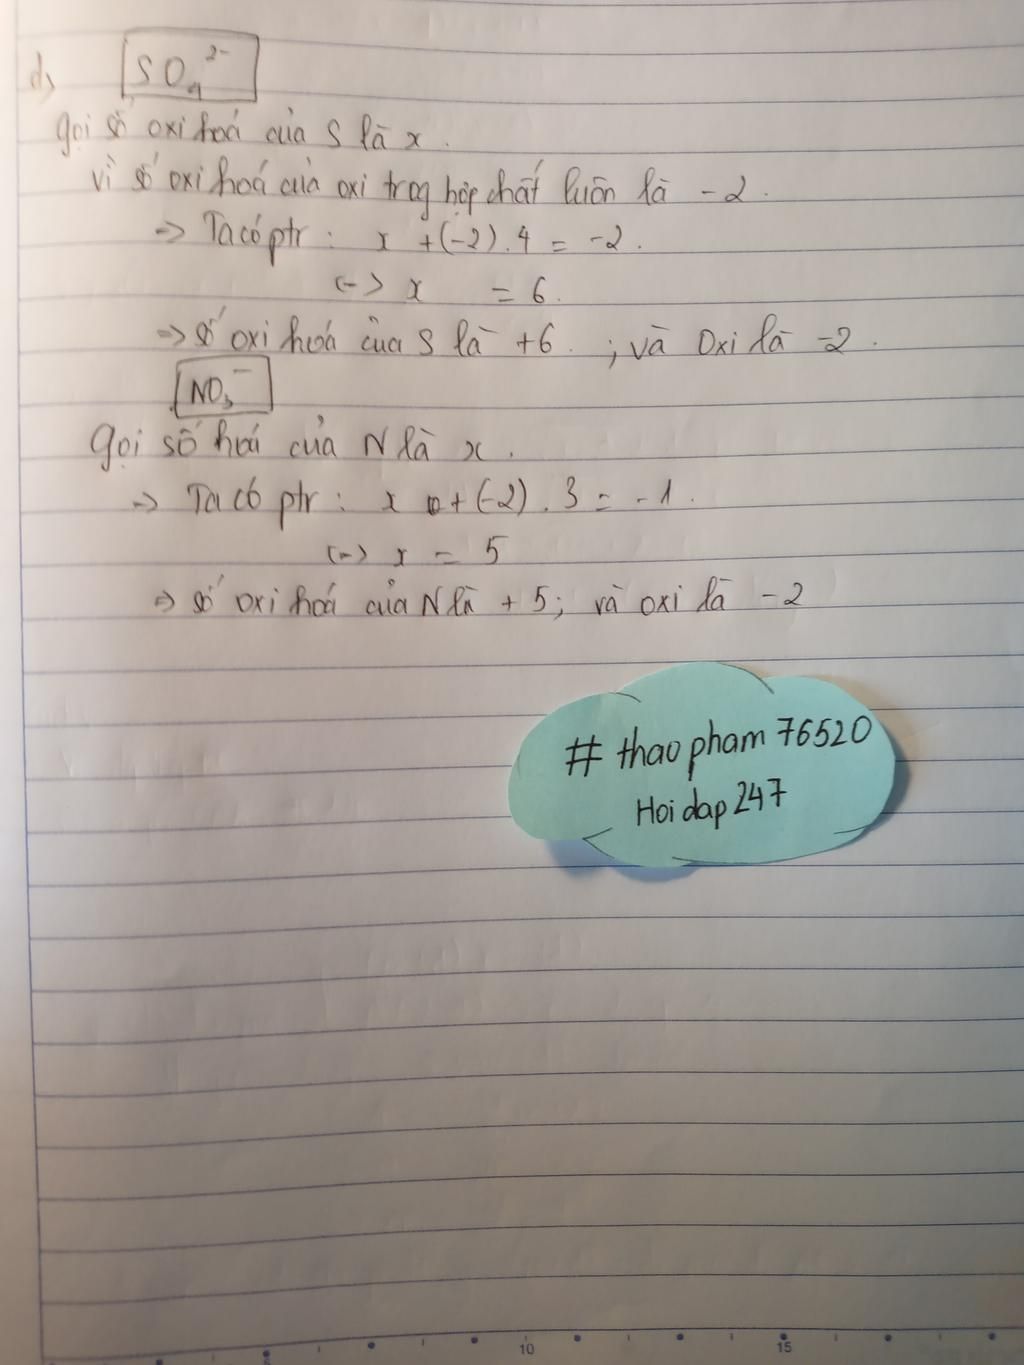 d) SO₄²⁻
Gọi số oxi hoá của S là x.
Vì số oxi hoá của oxi trog hợp chất luôn là -2.
=> Ta có ptr : x + (-2). 4 = -2.
<-> x = 6.
=> số oxi hoá của S là +6. ; và Oxi là -2.
NO₃⁻
Gọi số hoá của N là x.
=> Ta có ptr : x + (-2) . 3 = -1.
<-> x = 5
=> số oxi hoá của N là + 5; và oxi là -2
# thaopham 76520
Hoidap 247
10 15